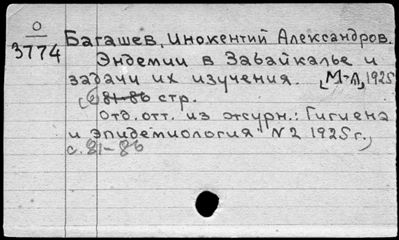 О
3774
Багашев, Иннокентий Александров.
Эндемии в Забайкалье и
задачи их изучения. [М-Л, 1925
(6) 81-86 стр.
Отд. отт. из журн.: "Гигиена
и эпидемиология" N2 1925 г.
с. 81-86